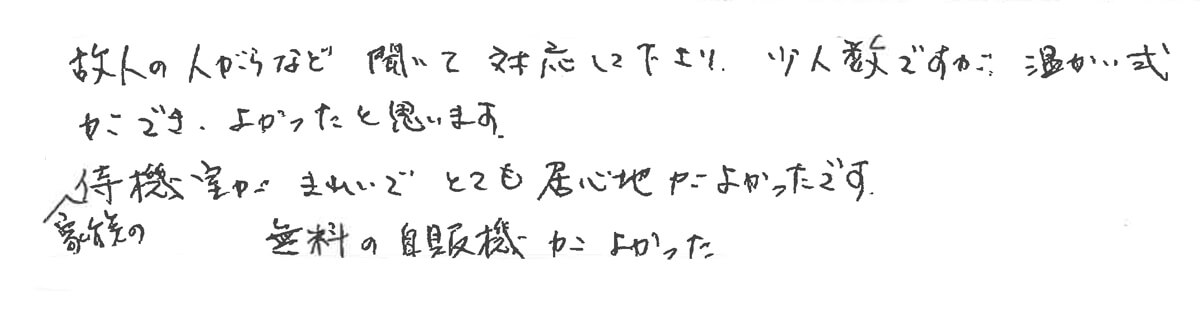 故人の人がらなど聞いて対応して下さり、少人数ですが温かい式
ができ、よかったと思います。
待機室がきれいでとても居心地がよかったです。
家族の 無料の自販機がよかった